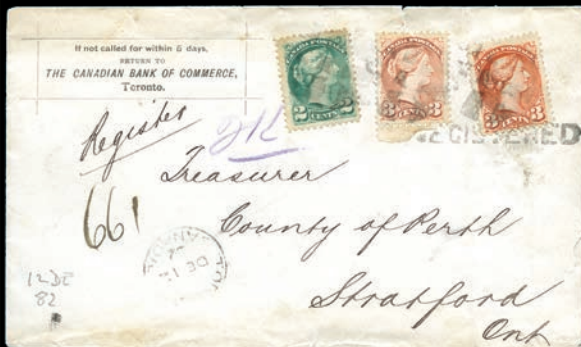 If not called for within 5 days,
RETURN TO
THE CANADIAN BANK OF COMMERCE,
Toronto.
CANADA POSTAGE
2 CENTS 2
CANADA POSTAGE
3 CENTS 3
CANADA POSTAGE
3 CENTS 3
REGISTERED
Register
Treasurer
661
County of Perth
DE 12
12 DE
82
Stratford
Ont